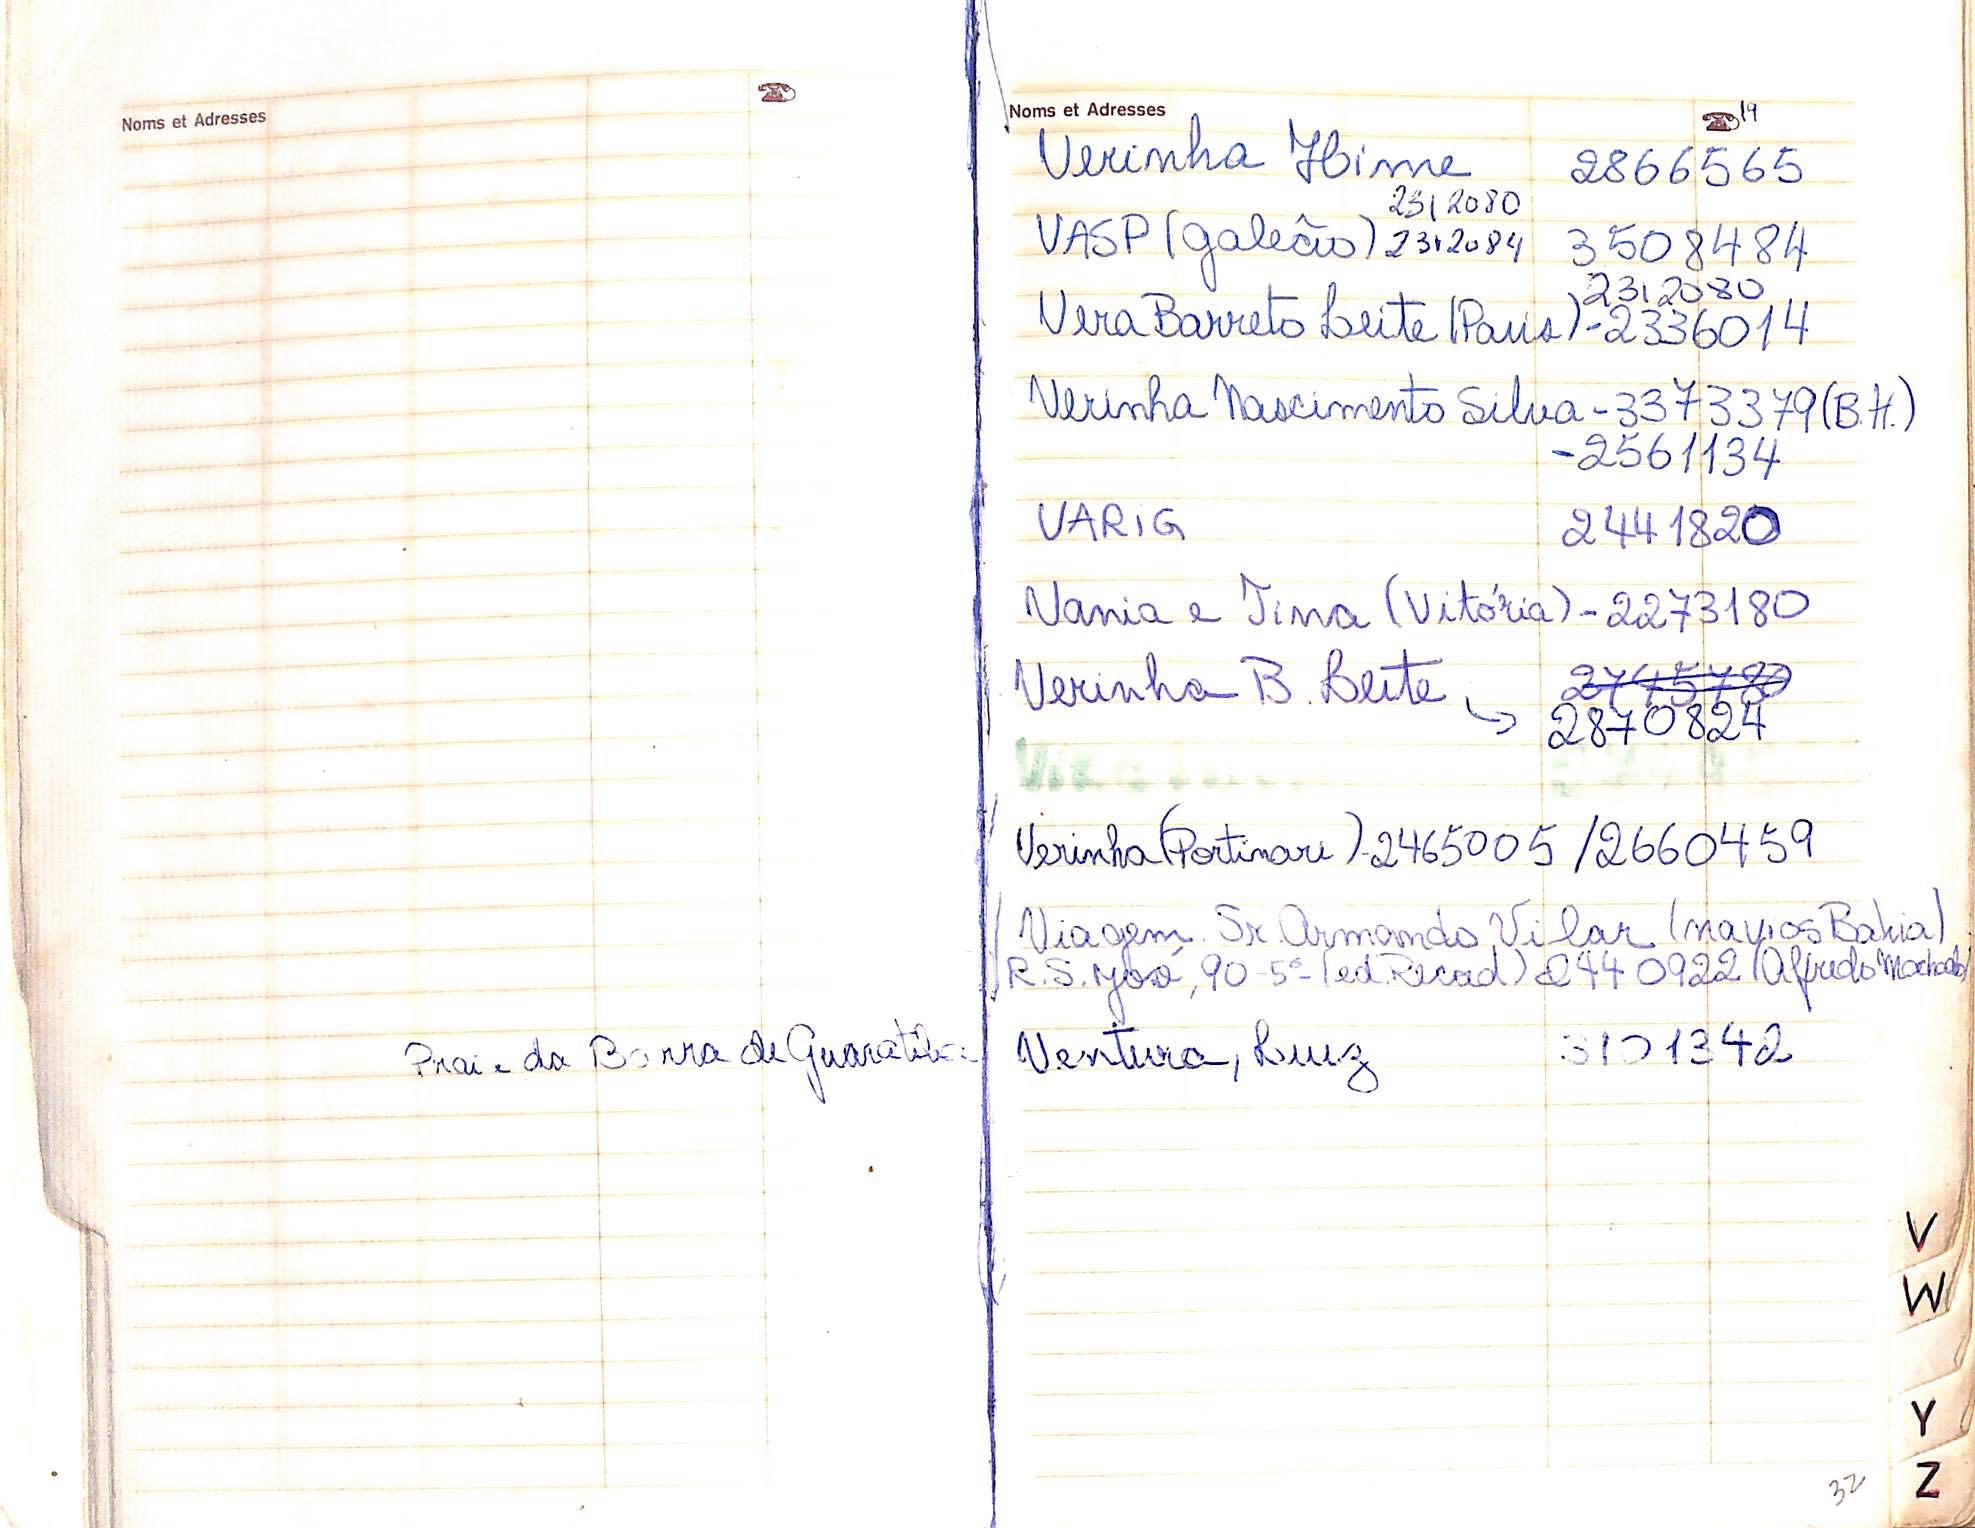 Noms et Adresses
Praia da Barra de Guaratiba
Noms et Adresses 19
Verinha Hime 2866565
2312080
VASP (Galeão) 2312084 3508484
2312080
Vera Barreto Leite (Paris) - 2336014
Verinha Nascimento Silva - 3373379 (B.H.)
- 2561134
VARIG 2441820
Vania e Tina (Vitória) - 2273180
Verinha B. Leite
2870824
Verinha (Portinari) - 2465005 / 2660459
Viagem. Sr. Armando Vilar (navios Bahia)
R. S. José, 90 - 5º - (ed. Recad) 2440922 (Alfredo Machado)
Ventura, Luiz 3101342
V
W
Y
Z
32